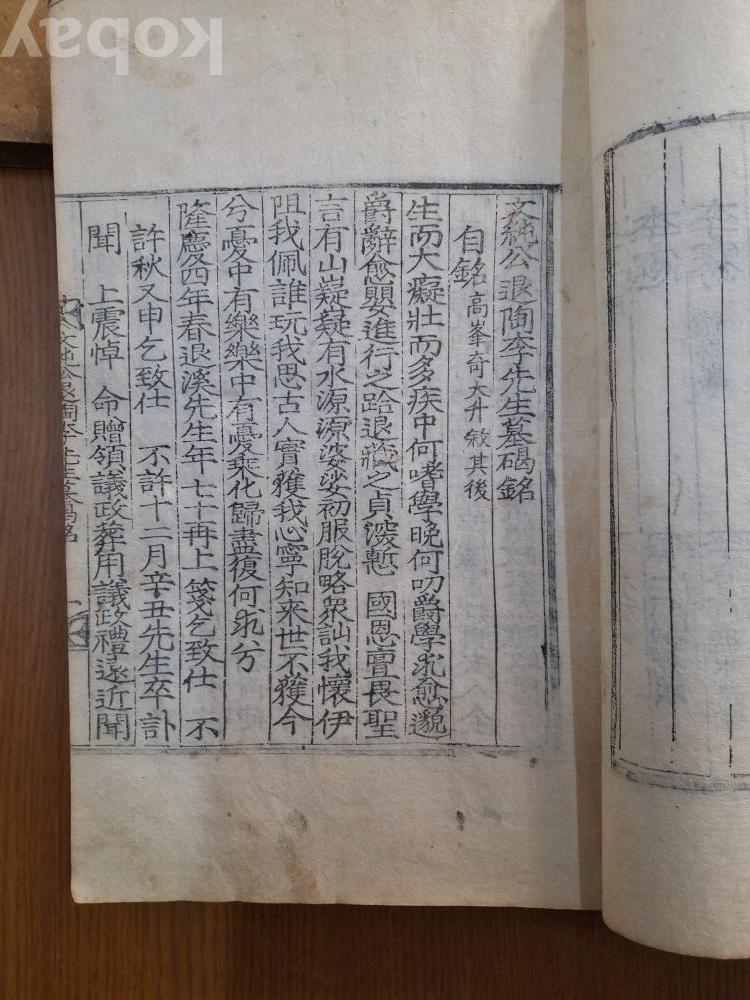 文純公退陶李先生墓碣銘
自銘高峯奇大升敍其後
生而大癡壯而多疾中何嗜學晚何叨爵學求愈邈
爵辭愈嬰進行之跲退藏之貞深慙 國恩亶畏聖
言有山嶷嶷有水源源婆娑初服脫略衆訕我懷伊
阻我佩誰玩我思古人實獲我心寧知來世不獲今
兮憂中有樂樂中有憂乘化歸盡復何求兮
隆慶四年春退溪先生年七十再上箋乞致仕 不
許秋又申乞致仕 不許十二月辛丑先生卒訃
聞 上震悼 命贈領議政葬用議政禮遠近聞
文純公退陶李先生墓碣銘 一
kobay